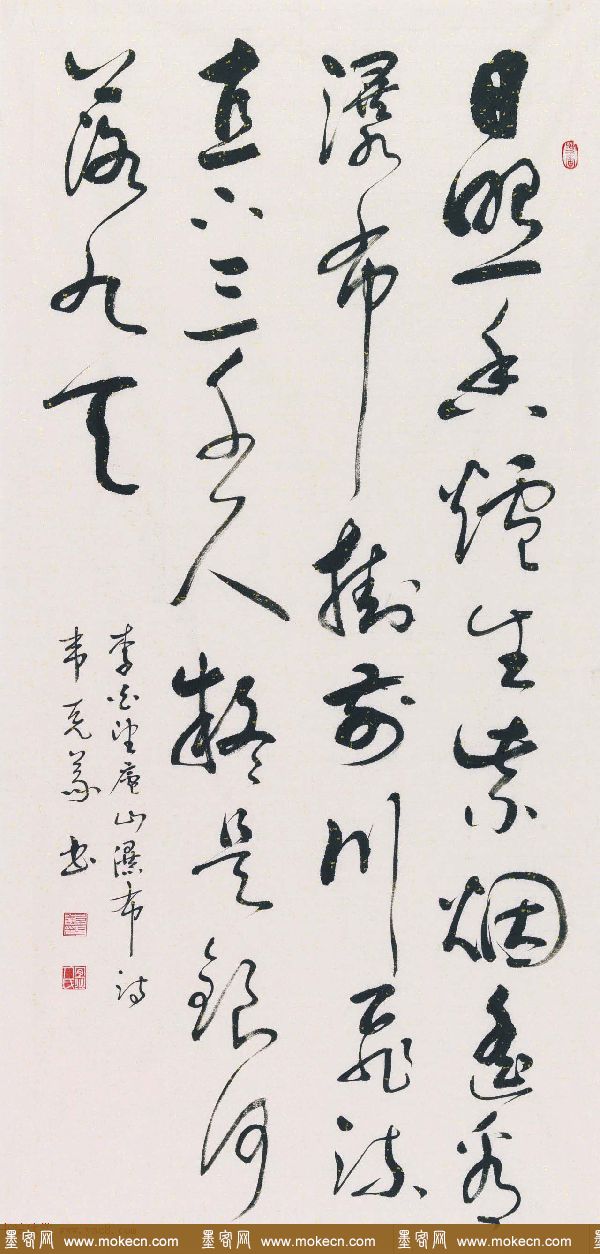 日照香爐生紫烟遙看
瀑布掛前川飛流
直下三千尺疑是銀河
落九天
李白望廬山瀑布詩
韦克義书
墨客网 www.mokecn.com 墨客网 www.mokecn.com 墨客网 www.mokecn.com